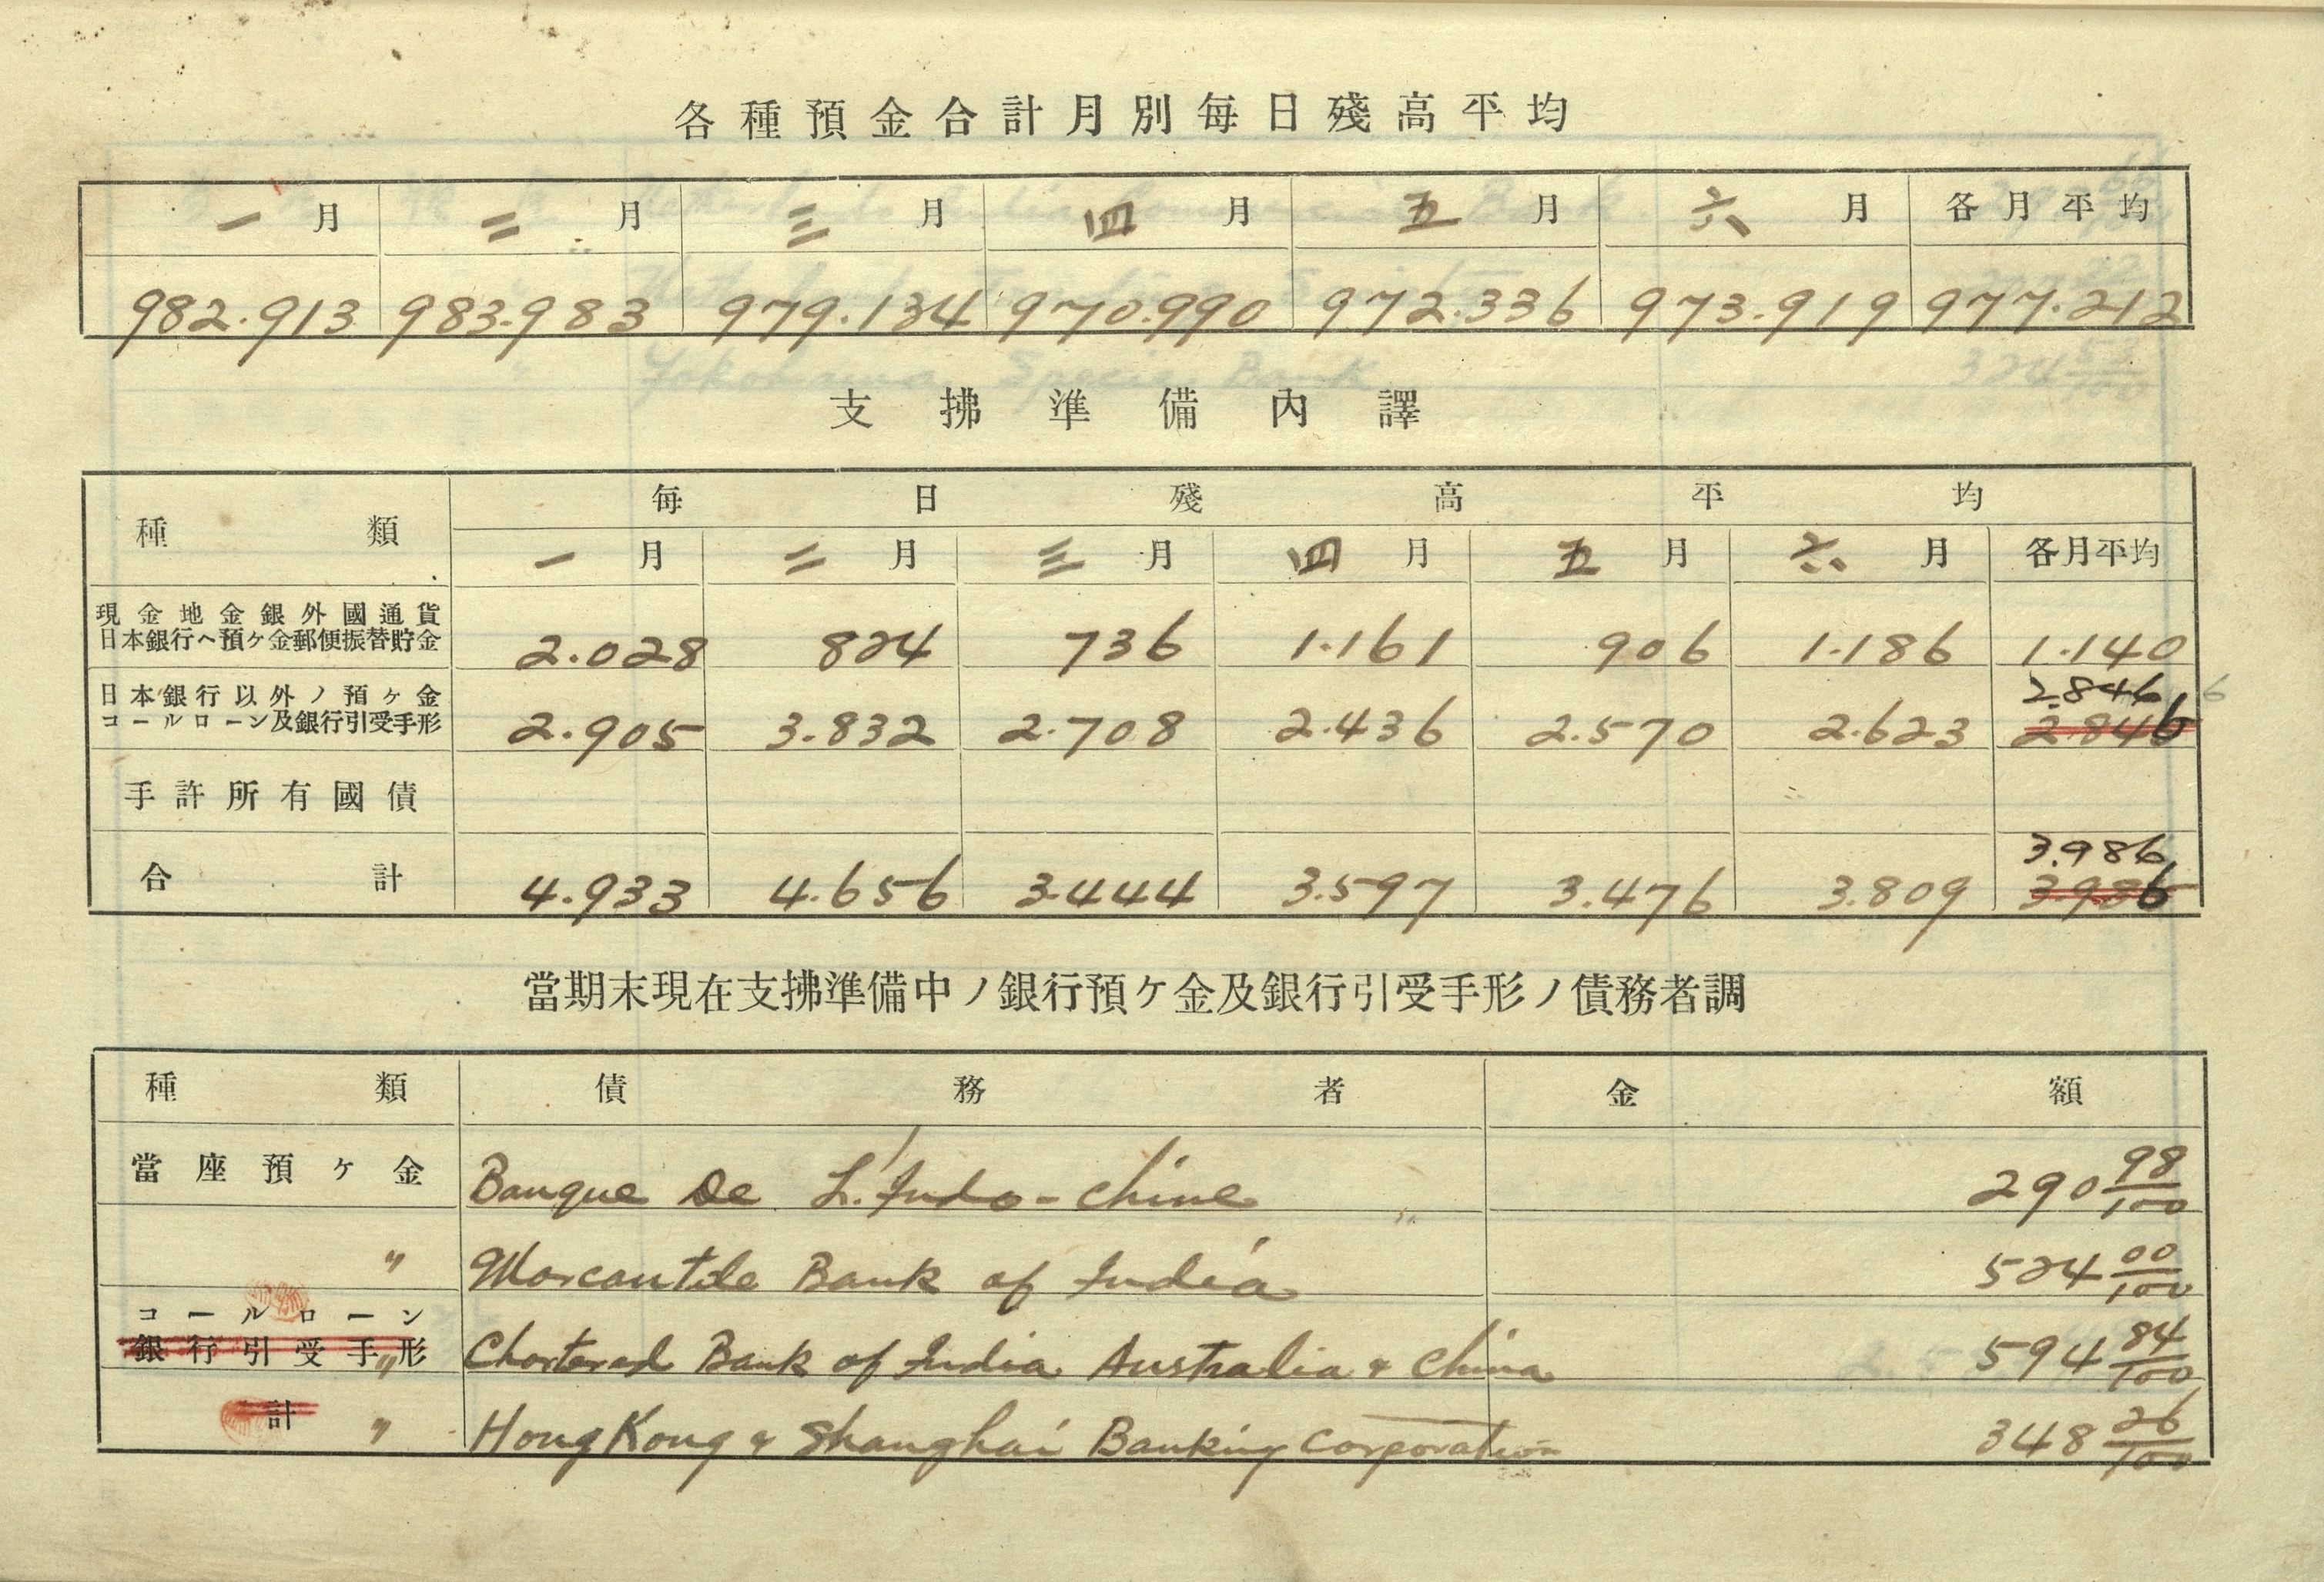 各種預金合計月別毎日殘高平均
一月 二月 三月 四月 五月 六月 各月平均
982.913 983.983 979.134 970.990 972.336 973.919 977.212
支拂準備內譯
種類 毎日殘高平均
一月 二月 三月 四月 五月 六月 各月平均
現金地金銀外國通貨
日本銀行ヘ預ヶ金郵便振替貯金 2.028 824 736 1.161 906 1.186 1.140
日本銀行以外ノ預ヶ金 2.846 6
コールローン及銀行引受手形 2.905 3.832 2.708 2.436 2.570 2.623 2.846
手許所有國債
3.986
合計 4.933 4.656 3.444 3.597 3.476 3.809 3.986
當期末現在支拂準備中ノ銀行預ケ金及銀行引受手形ノ債務者調
種類 債務者 金額
當座預ヶ金 Banque De L'Indo-Chine 290 98/100
〃 Mercantile Bank of India 524 00/100
コールローン
銀行引受手形 〃 Chartered Bank of India Australia & China 594 84/100
計 〃 HongKong & Shanghai Banking Corporation 348 26/100